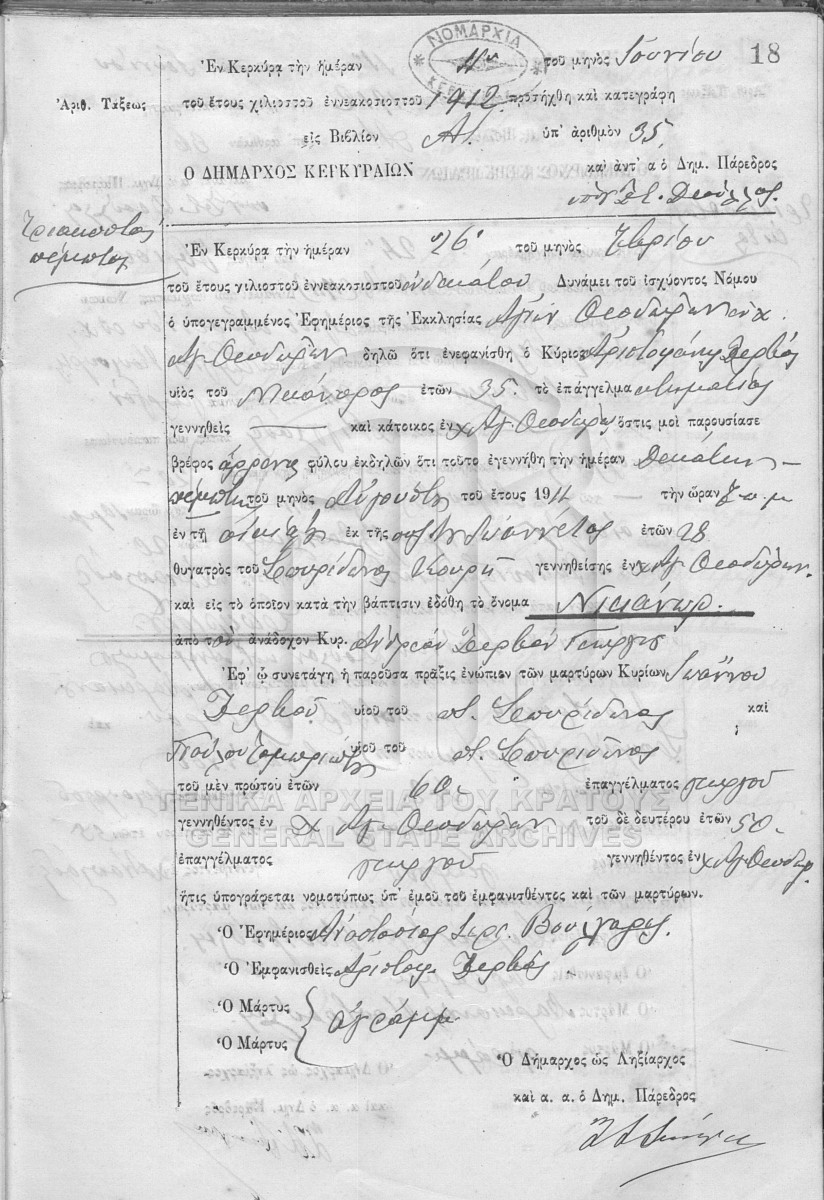 18
ΝΟΜΑΡΧΙΑ
Ἐν Κερκύρᾳ τὴν ἡμέραν τοῦ μηνὸς Ἰουνίου
Ἀριθ. Τάξεως
τοῦ ἔτους χιλιοστοῦ ἐννεακοσιοστοῦ 1912 προσήχθη καὶ κατεγράφη
εἰς Βιβλίον Α! ὑπ' ἀριθμὸν 35
Ο ΔΗΜΑΡΧΟΣ ΚΕΡΚΥΡΑΙΩΝ καὶ ἀντ' α ὁ Δημ. Πάρεδρος
Τριακοστός
πέμπτος
Ἐν Κερκύρᾳ τὴν ἡμέραν 26 τοῦ μηνὸς
τοῦ ἔτους χιλιοστοῦ ἐννεακοσιοστοῦ ἑνδεκάτου Δυνάμει τοῦ ἰσχύοντος Νόμου
ὁ ὑπογεγραμμένος Ἐφημέριος τῆς Ἐκκλησίας Ἁγίων Θεοδώρων
Ἁγ. Θεοδώρων δηλῶ ὅτι ἐνεφανίσθη ὁ Κύριος Ἀριστοφάνης Δερβός
υἱὸς τοῦ Νικάνορος ἐτῶν 35. τὸ ἐπάγγελμα κτηματίας
γεννηθεὶς — καὶ κάτοικος ἐν χ Ἁγ. Θεοδώρων ὅστις μοὶ παρουσίασε
βρέφος ἄρρενος φύλου ἐκδηλῶν ὅτι τοῦτο ἐγεννήθη τὴν ἡμέραν Δεκάτην
πέμπτην τοῦ μηνὸς Αὐγούστου τοῦ ἔτους 1911 τὴν ὥραν 7 π. μ
ἐν τῇ οἰκίᾳ ἐκ τῆς συζ. Ἀντωανέτας ἐτῶν 28
θυγατρὸς τοῦ Σπυρίδωνος γεννηθείσης ἐν χ Ἁγ. Θεοδώρων.
καὶ εἰς τὸ ὁποῖον κατὰ τὴν βάπτισιν ἐδόθη τὸ ὄνομα Νικάνωρ.
ἀπὸ τὸν ἀνάδοχον Κυρ. Ἀνδρέαν Δερβόν Γεωργίου
Ἐφ' ᾧ συνετάγη ἡ παροῦσα πρᾶξις ἐνώπιον τῶν μαρτύρων Κυρίων Ἰωάννου
Δερβοῦ υἱοῦ τοῦ π. Σπυρίδωνος καὶ
Παύλου υἱοῦ τοῦ π. Σπυρίδωνος
τοῦ μὲν πρώτου ἐτῶν 60 ἐπαγγέλματος γεωργοῦ
ΓΕΝΙΚΑ ΑΡΧΕΙΑ ΤΟΥ ΚΡΑΤΟΥΣ
γεννηθέντος ἐν χ Ἁγ. Θεοδώρων τοῦ δὲ δευτέρου ἐτῶν 50
GENERAL STATE ARCHIVES
ἐπαγγέλματος γεωργοῦ γεννηθέντος ἐν χ Ἁγ. Θεοδώρ.
ἥτις ὑπογράφεται νομοτύπως ὑπ' ἐμοῦ τοῦ ἐμφανισθέντος καὶ τῶν μαρτύρων.
Ὁ Ἐφημέριος Ἀναστάσιος Ἱερ. Βούλγαρης.
Ὁ Ἐμφανισθεὶς Ἀριστοφ. Δερβός.
Ὁ Μάρτυς
ἀγράμμ.
Ὁ Μάρτυς
Ὁ Δήμαρχος ὡς Ληξίαρχος
καὶ α. α. ὁ Δημ. Πάρεδρος